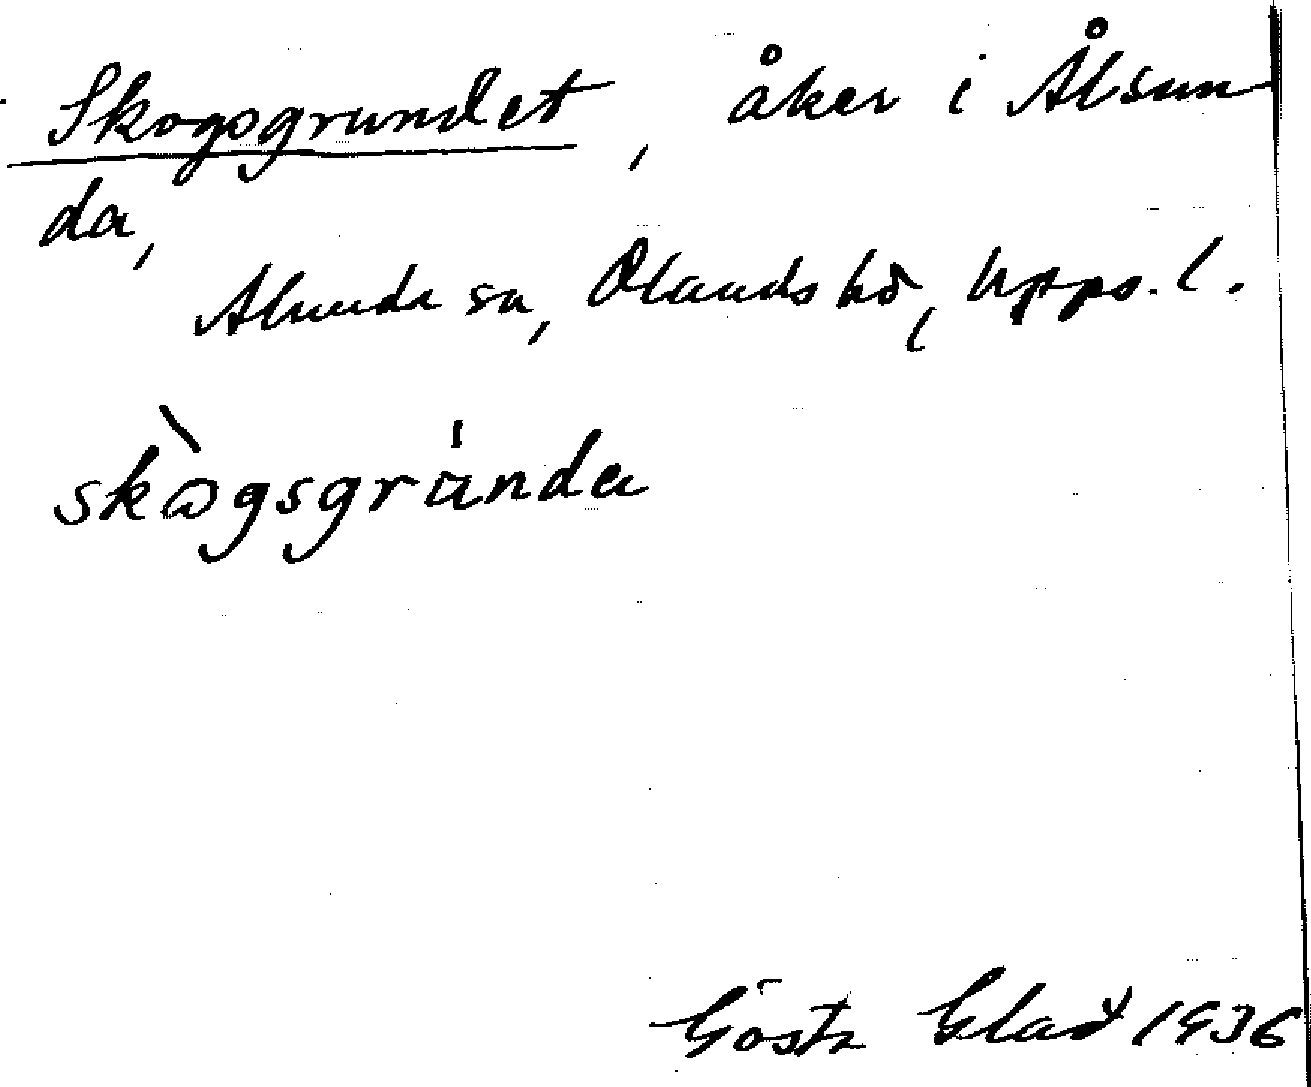 Skogsgrundet, åker i Ålsun
da,
Alunda sn, Olands hd, Upps. l.
skògsgru̍nda
Gösta Glad 1936